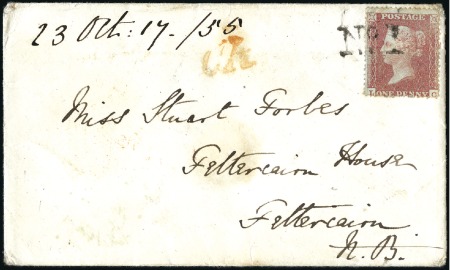 23 Oct: 17. /55
POSTAGE
No 1
ONE PENNY
Miss Stuart Forbes
Fettercairn House
Fettercairn
N. B.